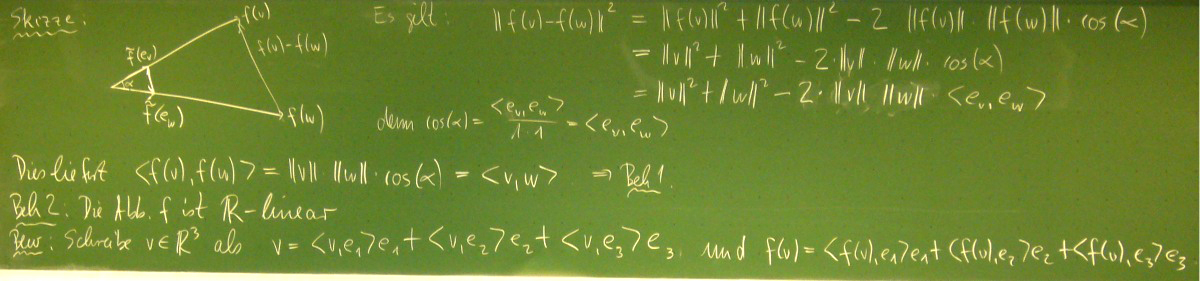 Skizze:
f(v)
f̃(e_v)
f(v)-f(w)
α
f̃(e_w)
f(w)
Es gilt: ||f(v)-f(w)||² = ||f(v)||² + ||f(w)||² - 2 ||f(v)|| · ||f(w)|| · cos(α)
= ||v||² + ||w||² - 2·||v|| · ||w|| · cos(α)
= ||v||² + ||w||² - 2·||v|| ||w|| <e_v, e_w>
denn cos(α) = <e_v, e_w> / 1·1 = <e_v, e_w>
Dies liefert <f(v), f(w)> = ||v|| ||w|| · cos(α) = <v, w> ⇒ Beh 1.
Beh 2: Die Abb. f ist ℝ-linear
Bew: Schreibe v ∈ ℝ³ als v = <v, e₁>e₁ + <v, e₂>e₂ + <v, e₃>e₃, und f(v) = <f(v), e₁>e₁ + <f(v), e₂>e₂ + <f(v), e₃>e₃